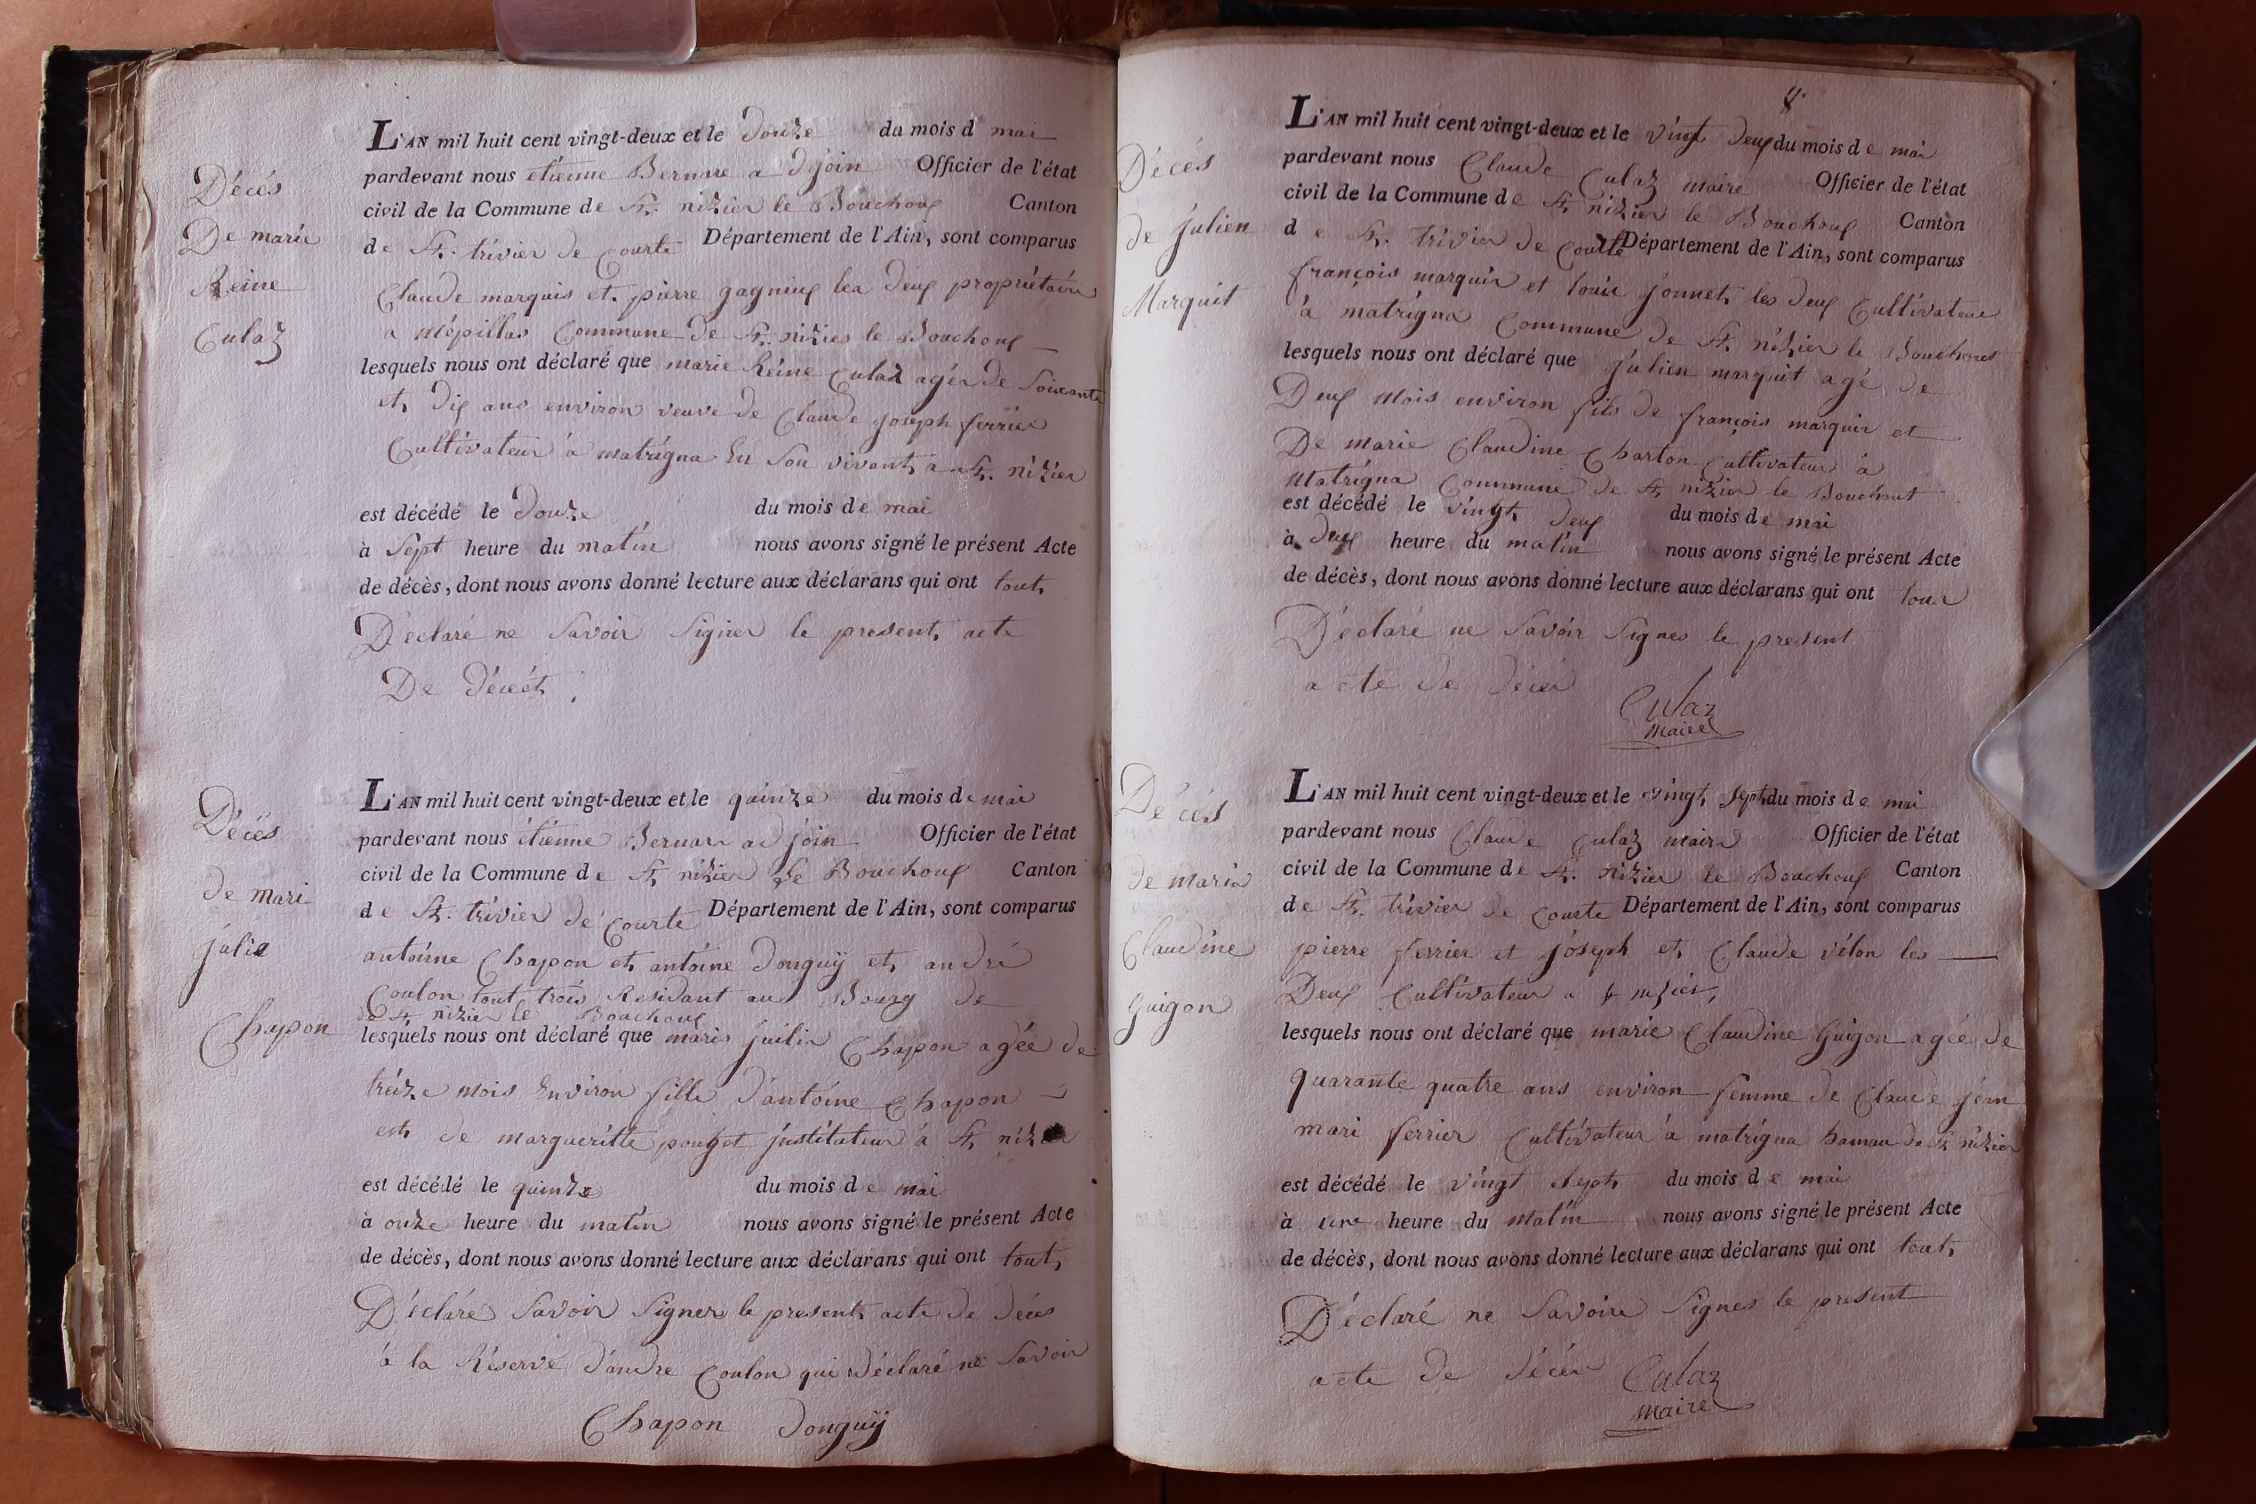 Décès
De marie
Reine
Culaz
L'AN mil huit cent vingt-deux et le douze du mois d mai
pardevant nous étienne Bernare a djoin Officier de l'état
civil de la Commune de St. nizier le Bouchoux Canton
de St. trivier de Courte Département de l'Ain, sont comparus
Claude marquis et pierre gagnieux les deux propriétaire
a Mépillas Commune de St. nizier le Bouchoux
lesquels nous ont déclaré que marie Réine Culaz agée de Soixante
et dix ans environ veuve de Claude joseph ferrier
Cultivateur à matrigna En son vivant a St. nizier
est décédé le Douze du mois de mai
à Sept heure du matin nous avons signé le présent Acte
de décès, dont nous avons donné lecture aux déclarans qui ont tout
Déclaré ne Savoir Signer le present acte
De Décét
Décès
de mari
julie
Chapon
L'AN mil huit cent vingt-deux et le quinze du mois de mai
pardevant nous étienne Bernare ad join Officier de l'état
civil de la Commune de St nizier le Bouchoux Canton
de St. trivier de Courte Département de l'Ain, sont comparus
antoine Chapon et antoine Donguÿ et andré
Coulon tout trois Residant au Bourg de
de St nizier le Bouchoux
lesquels nous ont déclaré que marie julie Chapon agée de
treize mois Environ fille d'antoine Chapon
et de margueritte pouget justituteur à St nizier
est décédé le quinze du mois de mai
à onze heure du matin nous avons signé le présent Acte
de décès, dont nous avons donné lecture aux déclarans qui ont tout
Déclaré Savoir Signer le present acte de déces
à la Réserve d'andre Coulon qui a déclaré ne Savoir
Chapon Donguÿ
Décés
de julien
Marquit
L'AN mil huit cent vingt-deux et le vingt deux du mois de mai
pardevant nous Claude Culaz maire Officier de l'état
civil de la Commune de St nizier le Bouchoux Canton
de St. trivier de Courte Département de l'Ain, sont comparus
françois marquis et louis jonnet les deux Cultivateur
à matrigna Commune de St nizier le Bouchoux
lesquels nous ont déclaré que julien marquit agé de
Deux Mois environ fils de françois marquis et
De marie Claudine Charton Cultivateur à
Matrigna Commune de St nizier le Bouchout
est décédé le vingt deux du mois de mai
à deux heure du matin nous avons signé le présent Acte
de décès, dont nous avons donné lecture aux déclarans qui ont tous
Déclaré ne Savoir Signes le present
acte de décés
Culaz
Maire
Décés
de marie
Claudine
Guigon
L'AN mil huit cent vingt-deux et le vingt sept du mois de mai
pardevant nous Claude Culaz maire Officier de l'état
civil de la Commune de St. nizier le Bouchoux Canton
de St. trivier de Courte Département de l'Ain, sont comparus
pierre ferrier et joseph et Claude vélon les
Deux Cultivateur a St nizier,
lesquels nous ont déclaré que marie Claudine Guigon agée de
quarante quatre ans environ femme de Claude jean
mari ferrier Cultivateur à matrigna hamau de St nizier
est décédé le vingt sept du mois de mai
à une heure du Matin nous avons signé le présent Acte
de décès, dont nous avons donné lecture aux déclarans qui ont tout
Déclaré ne Savoire Signes le present
acte de décés
Culaz
Maire